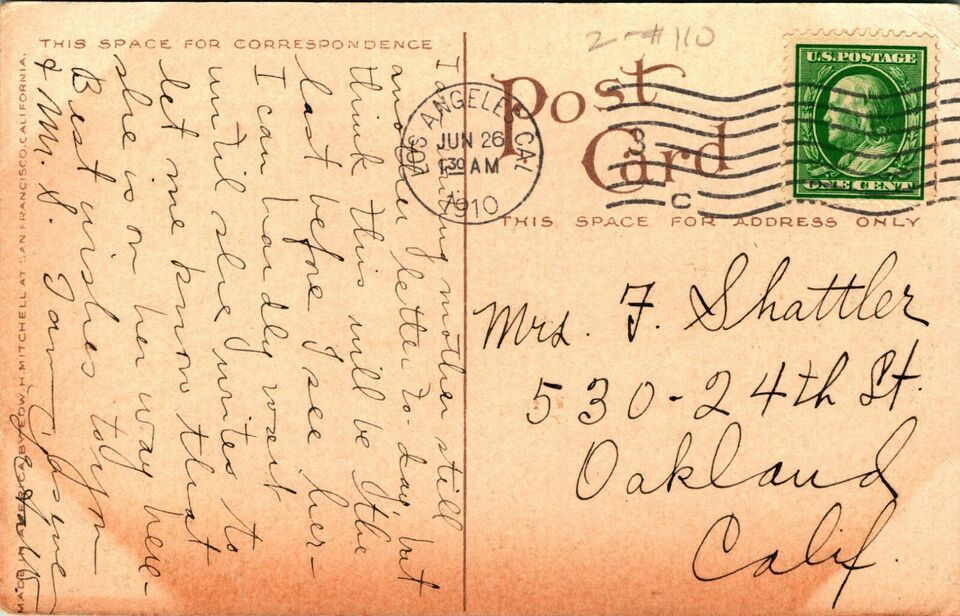 2-#110
THIS SPACE FOR CORRESPONDENCE
Post
Card
U.S. POSTAGE
ONE CENT
LOS ANGELES, CAL
JUN 26
1 30 AM
1910
3
C
THIS SPACE FOR ADDRESS ONLY
Mrs. F. Shattler
530-24th St.
Oakland
Calif.
I am mother still
another letter to-day but
think this will be the
last before I see her-
I can hardly wait
until she writes to
let me know that
she is on her way here-
Best wishes to
& Mr. S.
MADE IN AMERICA BY EDW. H. MITCHELL AT SAN FRANCISCO, CALIFORNIA.